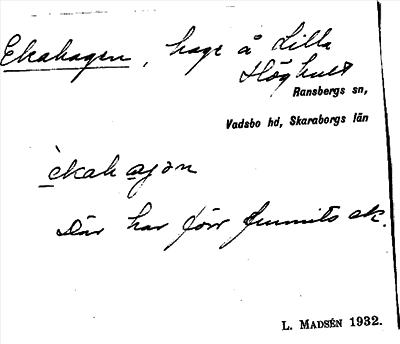 Ekahagen, hage å Lilla
Höghult
Ransbergs sn,
Vadsbo hd, Skaraborgs län
èkahagən
Där har förr funnits ek.
L. MADSÉN 1932.